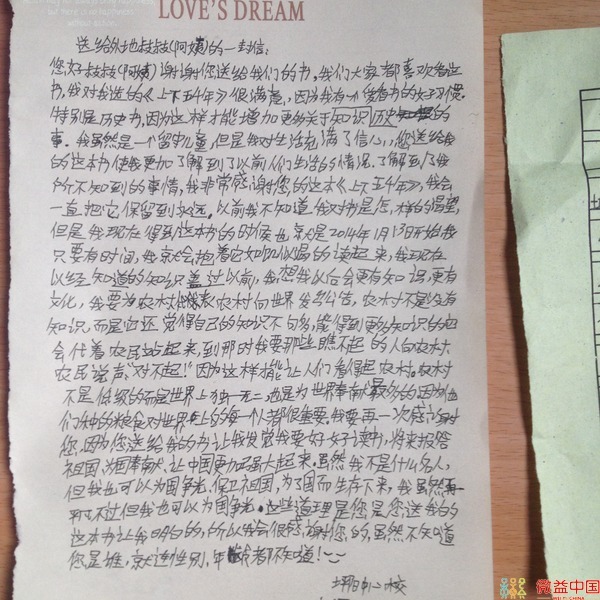 LOVE'S DREAM
送给外地叔叔(阿姨)的一封信:
您好叔叔(阿姨)谢谢您送给我们的书,我们大家都喜欢看这
书,我对我选的《上下五千年》很满意,因为我有个爱看书的好习惯.
特别是历史书,因为这样才能增加更多关于知识历史的
事.我虽然是一个留守儿童,但是我对生活充满了信心,您送给我
的这本书使我更加了解到了以前人们生活的情况.了解到了我
所不知到的事情,我非常感谢您的这本《上下五千年》,我会
一直把它保留到永远.以前我不知道我对书是怎么样的渴望,
但是我现在得到这本书的时候也就是2014年1月13日开始我
只要有时间,我就会抱着它如饥似渴的读起来,我现在
以经知道的知识盖过以前,我想我以后会更有知识,更有
文化,我要为农村代表农村向世界发出公告,农村不是没有
知识,而是它还觉得自己的知识不够多,能得到更多知识的我
会代着农民站起来,到那时我要那些瞧不起的人向农村.
农民说声:"对不起!"因为这样才能让人们看得起农村.农村
不是低级的而是世界上独一无二也是为世界奉献最多的因为他
们种的粮食对世界上的每个人都很重要.我要再一次感谢
您,因为您送给我的书让我发觉我要好好读书,将来报答
祖国,为国奉献,让中国更加强大起来.虽然我不是什么名人,
但我也可以为国争光,保卫祖国,为了国而生存下来,我虽然
不过但我也可以为国争光.这些道理是您是您送我的
这本书让我明白的,所以我会很感谢您的,虽然不知道
您是谁,就连性别,年龄都不知道!
心校
微益中国